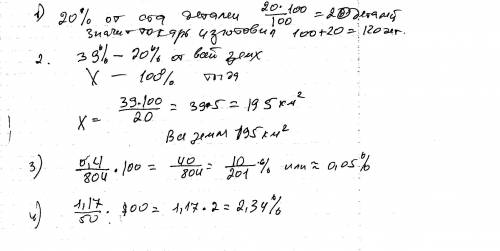 1) 20% от ста деталей 20·100/100 = 20 деталей
Значит токарь изготовил 100+20 = 120 шт.
2. 39% – 20% от всей
X – 100% тогда
X = 39·100/20 = 39·5 = 195 км²
Вся земля 195 км²
3) 0,4/804 · 100 = 40/804 = 10/201 % или ≈ 0,05%
4) 1,17/50 · 100 = 1,17·2 = 2,34%